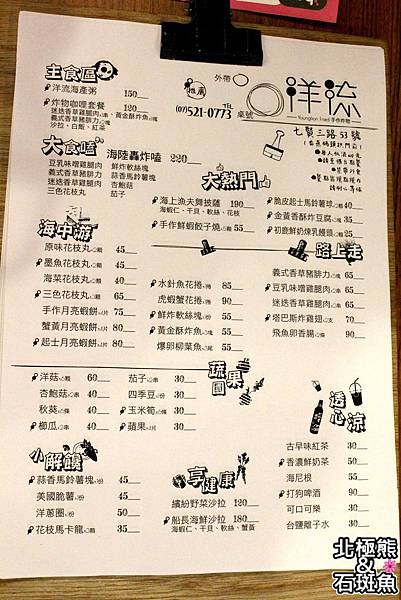 主食區
洋流海產粥 150
炸物咖哩套餐 120
迷迭香草雞腿肉、黃金酥炸魚
義式香草豬腓力
沙拉、白飯、紅茶
推薦
外帶
桌號
TEL
(07)521-0773
洋流
Younglion Fried 手作炸物
七賢三路53號
大食嗑
豆乳味噌雞腿肉
義式香草豬腓力
迷迭香草雞腿肉
三色花枝丸
海陸轟炸嗑 220
鮮炸軟絲塊
蒜香馬鈴薯塊
杏鮑菇
茄子
大熱門
海上漁夫舞披薩 190
海蝦仁、干貝、軟絲、花枝
手作鮮蝦餃子燒 35
脆皮起士馬鈴薯球 40
金黃香酥炸豆腐 35
初鹿鮮奶煉乳饅頭 25
海中游
原味花枝丸 45
墨魚花枝丸 45
海菜花枝丸 40
三色花枝丸 65
手作月亮蝦餅 75
蟹黃月亮蝦餅 80
起士月亮蝦餅 80
水針魚花捲 85
虎蝦蟹花捲 90
鮮炸軟絲塊 55
黃金酥炸魚 55
爆卵柳葉魚 55
路上走
義式香草豬腓力 65
豆乳味噌雞腿肉 65
迷迭香草雞腿肉 65
塔巴斯炸雞翅 70
飛魚卵香腸 90
蔬果園
洋菇 60
杏鮑菇 40
秋葵 40
櫛瓜 40
茄子 30
四季豆 30
玉米筍 30
蘋果 30
透心涼
古早味紅茶 30
香濃鮮奶茶 50
海尼根 55
打狗啤酒 90
可口可樂 30
台鹽離子水 30
小解饞
蒜香馬鈴薯塊 45
美國脆薯 45
洋蔥圈 50
花枝馬卡龍 35
享健康
繽紛野菜沙拉 120
船長海鮮沙拉 180
海蝦仁、干貝、軟絲、蟹黃
北極熊
&
石斑魚